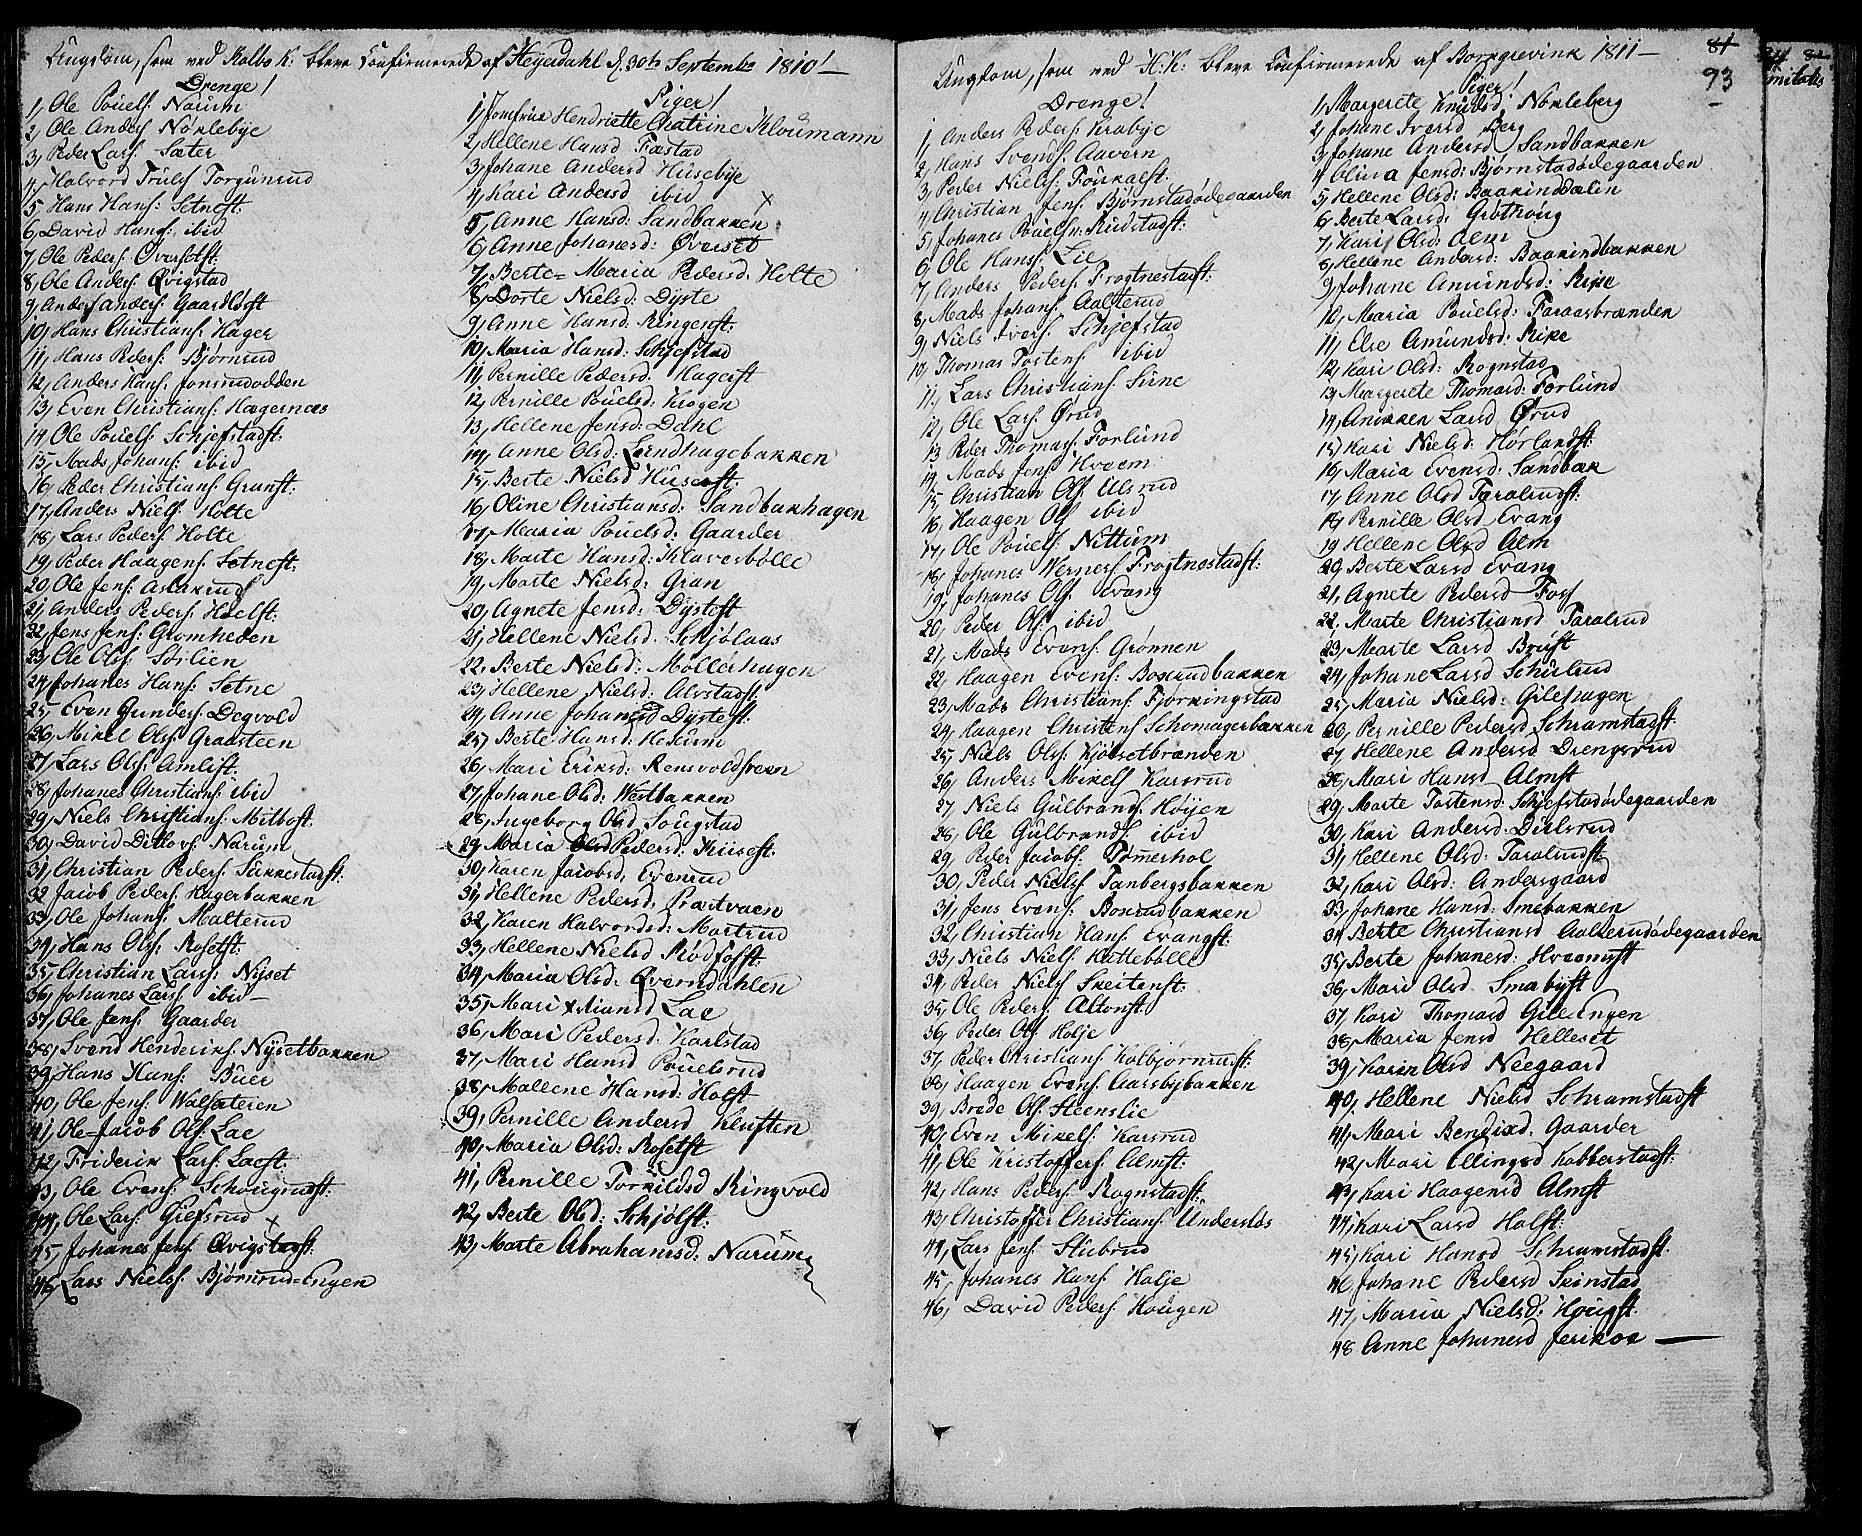 Ungdom, som ved Kolbo K: bleve Confirmerede af Heyerdahl d: 30te Septembr 1810!—
Drenge!
1, Ole Pouels: Narum
2, Ole Anders: Nørlebye
3, Peder Lars: Sæter
4, Halvord Truls: Torgunrud
5 Hans Hans: Setneft:
6, David Hans: ibid
7, Ole Peders: Øverseft:
8, Ole Anders: Qvigstad
9, Anders Anders: Gaardlöft
10, Hans Christians: Hager
11, Hans Peders: Bjørnrud
12, Anders Hans: Jonsrudodden
13, Even Christians: Hagernæs
14 Ole Pouels: Schjefstadft:
15, Mads Johans: ibid
16, Peder Christians: Granft:
17, Anders Niels: Holte
18, Lars Peders: Holte
19, Peder Haagens: Setneft:
20, Ole Jens:
21, Anders Peders: Hoelft:
22, Jens Jens: Gromheden
23, Ole Ols: Sørlien
24, Johanes Hans: Setne
25, Even Gunders: Degvold
26, Mikel Ols: Graasteen
27, Lars Ols: Amlift:
28, Johanes Christians: ibid
29, Niels Christians: Mitboft:
30, David Ditlovs: Narum
31, Christian Peders: Sukkestadft:
32 Jacob Peders: Hagerbakken
33, Ole Johans: Malterud
34, Hans Ols: Roseft:
35, Christian Lars: Nyset
36, Johanes Lars: ibid—
37, Ole Jens: Gaarder
38, Svend Henderiks: Nysetbakken
39, Hans Hans: Buer
40, Ole Jens: Walsæteren
41, Ole=Jacob Ols: Lae
42, Friderik Lars: Laeft:
43, Ole Evens: Schougrudft:
44, Ole Lars: Giefsrud
45, Johanes Jens: Qvigstadft:
46, Lars Niels: Bjørnrud=Engen
Piger!
1, Jomfrue Hendriette Chatrine Kloumann
2, Hellene Hansd Fæstad
3, Johane Andersd Husebye
4, Kari Andersd ibid
5, Anne Hansd: Sandbakken
6, Anne Johanesd: Øverset
7, Berte=Maria Pedersd: Holte
8, Dorte Nielsd: Dyste
9, Anne Hansd: Ringenft:
10, Maria Hansd: Schjefstad
11, Pernille Pedersd: Hagerft
12, Pernille Pouelsd: Krogen
13, Hellene Jensd: Dahl
14, Anne Olsd: Lundhagebakken
15, Berte Nielsd Huserft:
16, Oline Christiansd: Sandbakhagen
17, Maria Pouelsd: Gaarder
18, Marte Hansd: Klaverbølle
19, Marte Nielsd: Gran
20, Agnete Jensd: Dysteft
21, Hellene Nielsd: Schjølaas
22, Berte Nielsd: Møllerhagen
23, Hellene Nielsd: Alvstadft:
24, Anne Johanesd Dysteft:
25, Berte Hansd: Hexum
26, Mari Eriksd: Rensvoldsveen
27, Johane Olsd: Westbakken
28, Ingeborg Olsd Sougstad
29, Maria Pedersd: Huseft:
30, Karen Jacobsd: Evenrud
31, Hellene Pedersd: Præstvæen
32, Karen Halvordsd: Mortrud
33, Hellene Nielsd Rødsofft:
34, Maria Olsd: Qverndahlen
35, Mari xstiansd Lae
36, Mari Pedersd: Karlstad
37, Mari Hansd Pouelsrud
38, Mallene Hansd: Holft
39, Pernille Andersd Kluften
40, Maria Olsd: Roseft
41, Pernille Torkildsd Ringvold
42, Berte Olsd: Schjølft:
43, Marte Abrahamsd: Narum
Ungdom, som ved H:K: bleve Confirmerede af Borrgrevink 1811—
81
93
Drenge!
1, Anders Peders: Krabye
2, Hans Svends: Aavern
3, Peder Niels: Foukalft:
4, Christian Jens: Bjørnstadødegaarden
5, Johanes Pouelsn: Rudstadft:
6, Ole Hans: Lie
7, Anders Peders: Frogtnestadft:
8, Mads Johans: Aalterud
9, Niels Ivers: Schjefstad
10, Thomas Tostens: ibid
11, Lars Christians: Sune
12, Ole Lars: Ørud
13 Peder Thomas: Forlund
14, Mads Jens: Hveem
15, Christian Ols: Ulsrud
16, Haagen Ols ibid
17, Ole Pouels: Nittum
18, Johanes Werners: Frogtnestadft:
19, Johanes Ols: Evang
20, Peder Ols: ibid
21, Mads Evens: Grønnen
22, Haagen Evens: Boxrudbakken
23, Mads Christians: Fjorkingstad
24, Haagen Christens Schomagerbakken
25, Niels Ols: Kjølsetbrænden
26, Anders Mikels Karsrud
27, Niels Gulbrands: Høijen
28, Ole Gulbrands: ibid
29, Peder Jacobs: Tømerhol
30, Peder Niels: Tanbergsbakken
31, Jens Evens: Boxrudbakken
32, Christian Hans: Evangft:
33, Niels Niels: Kattebølle
34, Peder Niels: Skeitenft:
35, Ole Peders: Altonft:
36, Peder Ols: Holje
37, Peder Christians: Kolbjørnrudft:
38, Haagen Evens: Aarsbybakken
39, Brede Ols: Steenslie
40, Even Mikels: Karsrud
41, Ole Kristoffers: Almft:
42, Hans Peders: Rognstadft:
43, Christoffer Christians: Underlös
44, Lars Jens: Stubrud
45, Johanes Hans: Holje
46, David Peders: Hougen
Piger!
1, Margerete Knudsd Nørleberg
2, Johane Iversd Berg
3, Johane Andersd Sandbakken
4 Olina Jensd: Bjørnstadødegaarden
5, Hellene Olsd: Baakinddalin
6, Berte Larsd: Grøthoug
7, Kari Olsd: Alm
8, Hellene Andersd: Baakindbakken
9, Johane Amundsd: Rike
10, Maria Pouelsd: Faraasbrænden
11, Else Amundsd: Rike
12, Kari Olsd: Rognstad
13, Margerete Thomasd: Forlund
14, Anikken Larsd Ørud
15, Kari Nielsd: Horlandft:
16, Maria Evensd: Sandbak
17, Anne Olsd Taralrudft:
18, Pernille Olsd Evang
19, Hellene Olsd Alm
20, Berte Larsd Evang
21, Agnete Pedersd Foss
22, Marte Christiansd Taralrud
23, Marte Larsd Bruft
24, Johane Larsd Schiulrud
25, Maria Nielsd: Gilehagen
26, Pernille Pedersd Schramstadft:
27, Hellene Andersd Drengsrud
28, Mari Hansd Almft
29, Marte Tostensd: Schjefstadødegaarden
30, Kari Andersd: Dulsrud
31, Hellene Olsd: Taralrudft:
32, Kari Olsd: Andersgaard
33, Johane Hansd: Smebakken
34 Berte Christiansd Aalterudødegaarden
35, Berte Johanesd: Hveemft
36, Mari Olsd Smebyft
37 Kari Thomasd Gile Engen
38, Maria Jensd Helleset
39, Karin Olsd Neegaard
40, Hellene Nielsd Schramstadft
41, Mari Bendixd. Gaarder
42, Mari Ellingsd Kobberstadft:
43, Kari Haagensd Almft
44, Kari Larsd Holft:
45, Kari Hansd Schramstadft:
46 Johane Pedersd Seinstad
47, Maria Nielsd: Hougft:
48 Anne Johanesd Jerikoe —
82